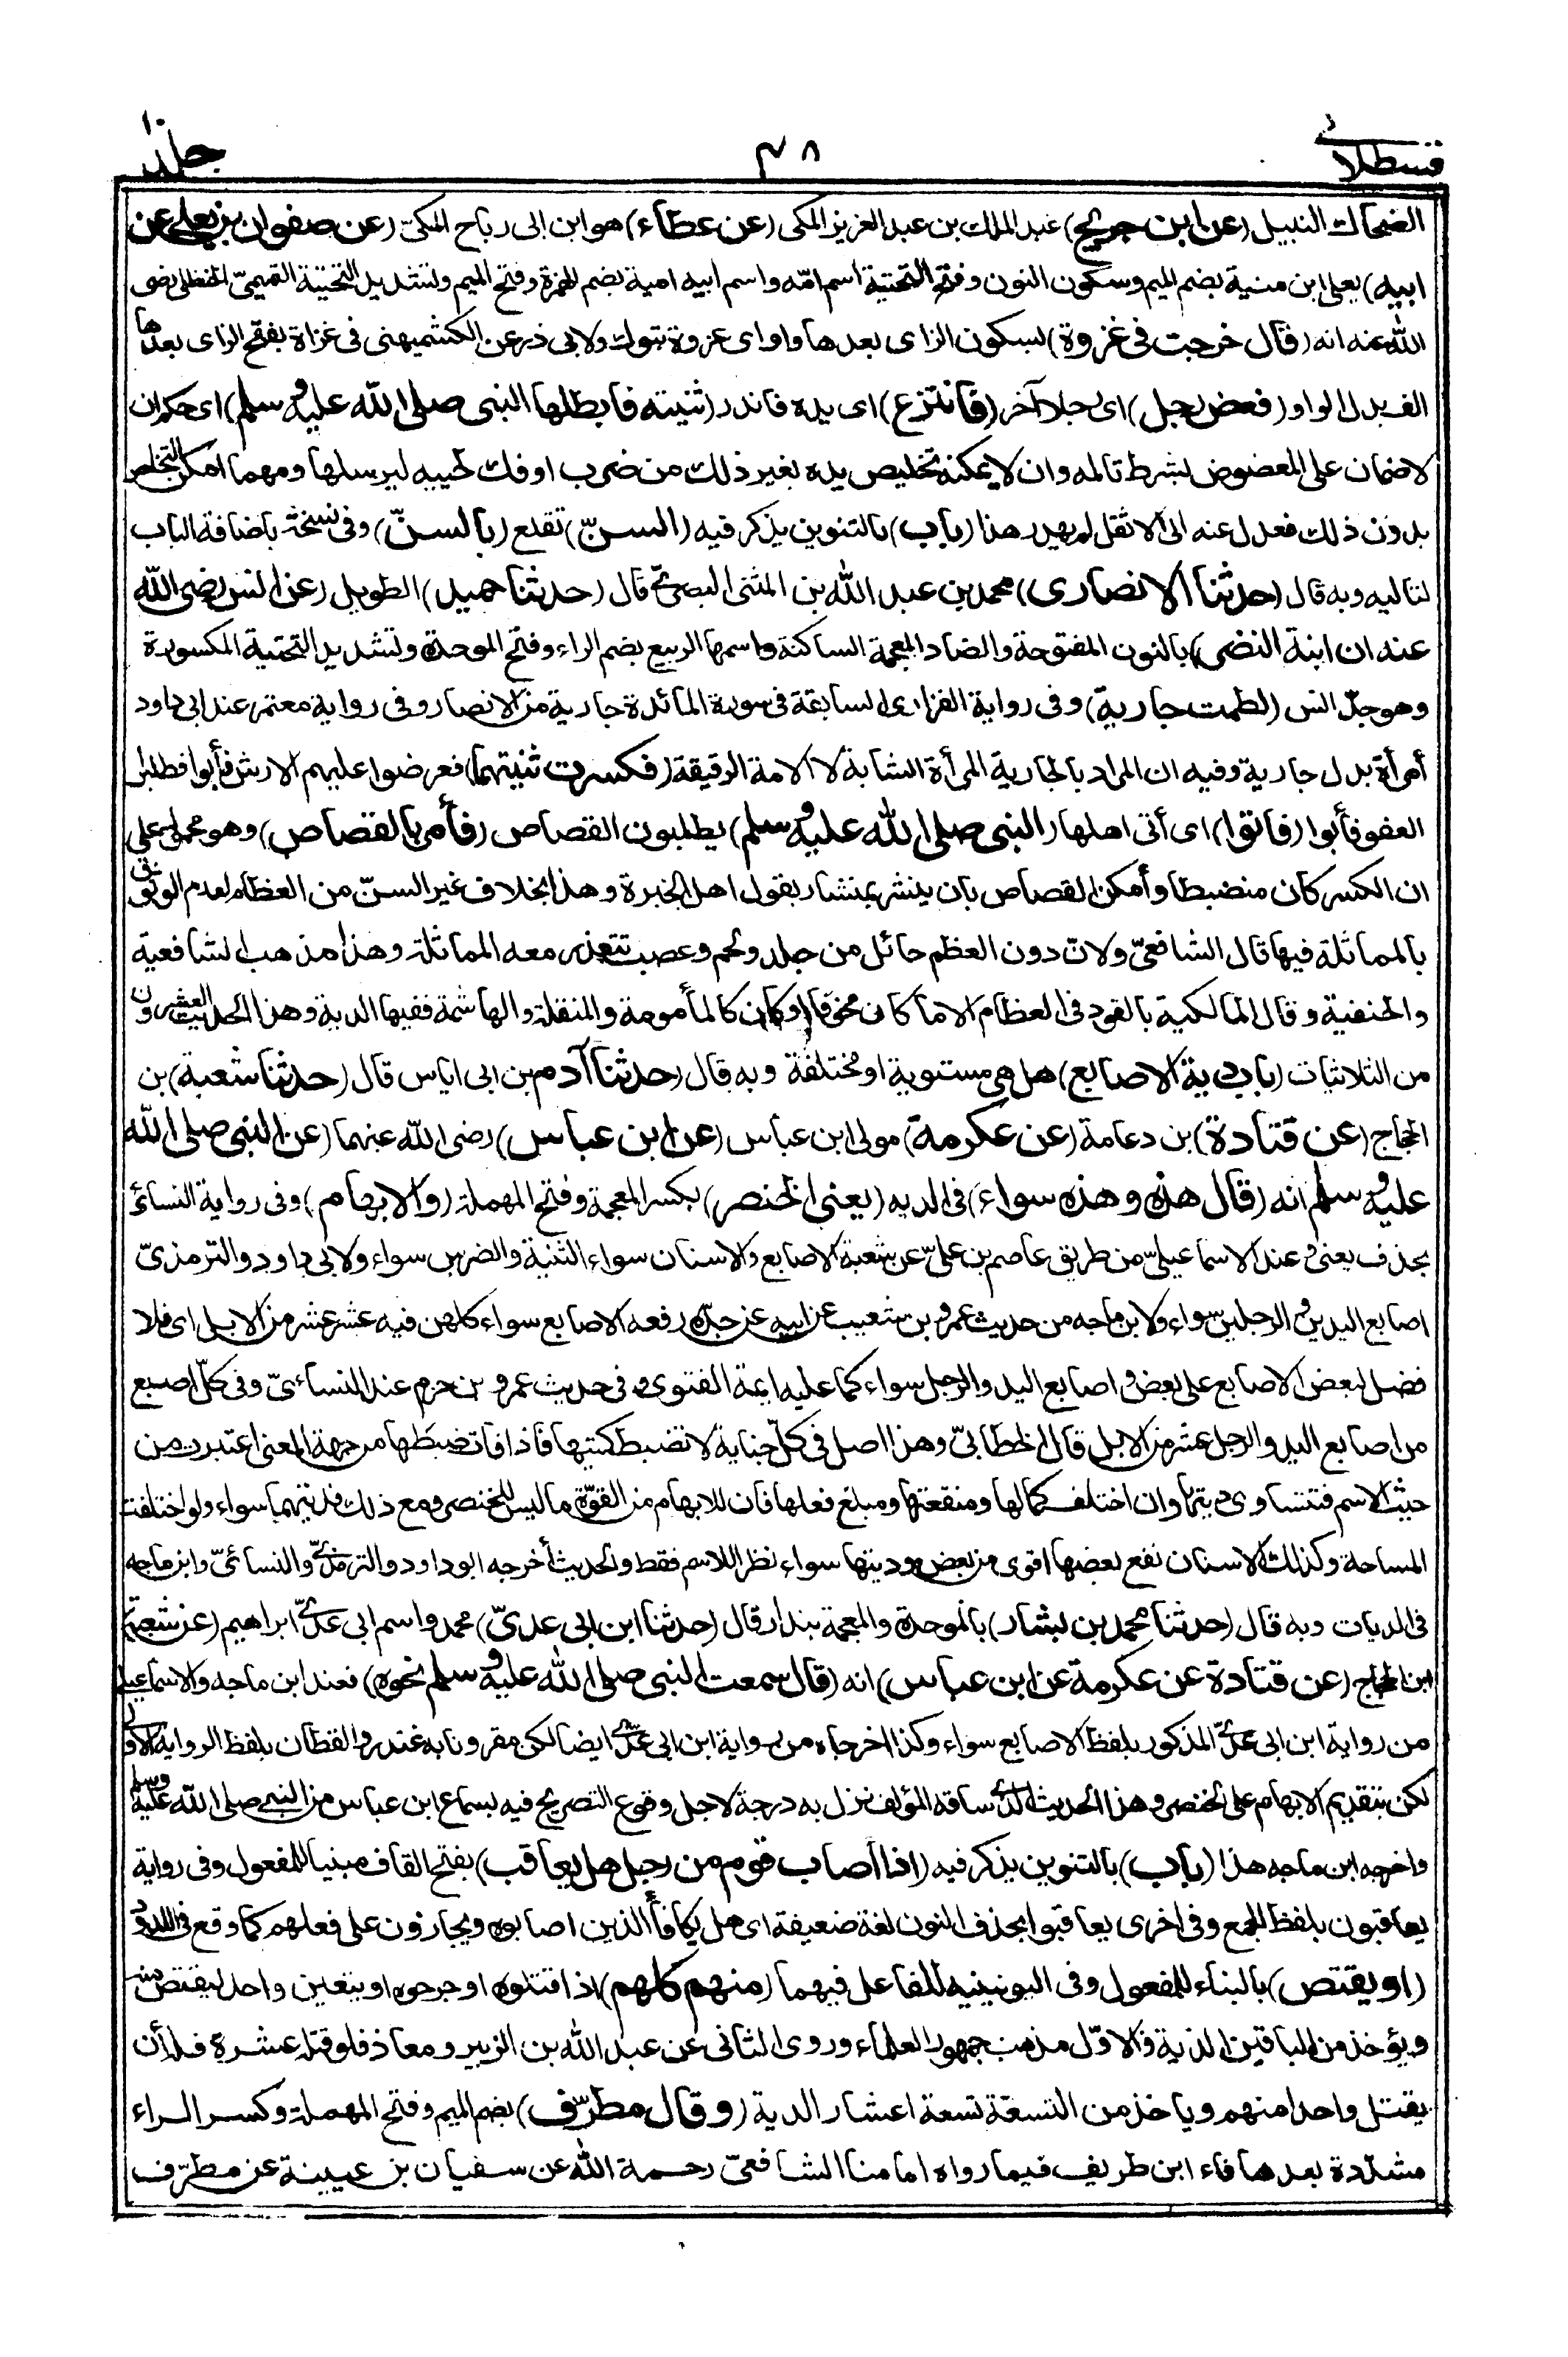 قسطلانی ۴۸ جلد ۱۰
الضحاك النبيل (عن ابن جريج) عبد الملك بن عبد العزيز المكى (عن عطاء) هو ابن ابى رباح المكىّ (عن صفوان بن يعلى عن
ابيه) يعلى ابن منية بضم الميم وسكون النون وفتح التحتية اسم امّه واسم ابيه امية بضم الهمزة وفتح الميم وتشديد التحتية التميمىّ الحنظلى رضى
الله عنه انه (قال خرجت فى غزوة) بسكون الزاى بعدها واو اى غزوة تبوك ولابى ذر عن الكشميهنى فى غزاة بفتح الزاى بعدها
الف بدل الواو (فعض رجل) اى رجلا آخر (فانتزع) اى يده فاندر (ثنيته فابطلها النبى صلى الله عليه وسلم) اى حكم ان
لا ضمان على المعضوض بشرط تألمه وان لا يمكنه تخليص يده بغير ذلك من ضرب او فك لحييه ليرسلها ومهما امكن التخلص
بدون ذلك فعدل عنه الى الاثقل لم يهدر هذا (باب) بالتنوين يذكر فيه (السنّ) تقلع (بالسنّ) وفى نسخة باضافة الباب
لتاليه وبه قال (حدثنا الانصارى) محمد بن عبد الله بن المثنى البصرىّ قال (حدثنا حميد) الطويل (عن انس رضى الله
عنه ان ابنة النضر) بالنون المفتوحة والضاد المعجمة الساكنة واسمها الربيع بضم الراء وفتح الموحدة وتشديد التحتية المكسورة
وهو جدّ انس (لطمت جارية) وفى رواية الفزارى السابقة فى سورة المائدة جارية من الانصار وفى رواية معتمر عند ابى داود
أمرأة بدل جارية وفيه ان المراد بالجارية المرأة الشابة لا الامة الرقيقة (فكسرت ثنيتها) فعرضوا عليهم الارش فأبوا فطلبوا
العفو فأبوا (فاتوا) اى أتى اهلها (النبى صلى الله عليه وسلم) يطلبون القصاص (فأمر بالقصاص) وهو محمول على
ان الكسر كان منضبطا وأمكن القصاص بان ينشر بمنشار بقول اهل الخبرة وهذا بخلاف غير السنّ من العظام لعدم الوثوق
بالمماثلة فيها قال الشافعىّ ولانّ دون العظم حائل من جلد ولحم وعصب تتعذر معه المماثلة وهذا مذهب الشافعية
والحنفية وقال المالكية بالقود فى العظام الا ما كان مخوّفا او كان كالمأمومة والمنقلة والهاشمة ففيها الدية وهذا الحديث العشرون
من الثلاثيات (باب دية الاصابع) هل هى مستوية او مختلفة وبه قال (حدثنا آدم) بن ابى اياس قال (حدثنا شعبة) بن
الحجاج (عن قتادة) بن دعامة (عن عكرمة) مولى ابن عباس (عن ابن عباس) رضى الله عنهما (عن النبى صلى الله
عليه وسلم) انه (قال هذه وهذه سواء) فى الديه (يعنى الخنصر) بكسر المعجمة وفتح المهملة (والابهام) وفى رواية النسائى
بحذف يعنى وعند الاسماعيلىّ من طريق عاصم بن علىّ عن شعبة الاصابع والاسنان سواء الثنية والضرس سواء ولابى داود والترمذىّ
اصابع اليدين والرجلين سواء ولابن ماجه من حديث عمرو بن شعيب عن ابيه عن جدّه رفعه الاصابع سواء كلهن فيه عشر عشر من الابل اى فلا
فضل لبعض الاصابع على بعض واصابع اليد والرجل سواء كما عليه ايمة الفتوى وفى حديث عمرو بن حزم عند النسائىّ وفى كلّ اصبع
من اصابع اليد والرجل عشر من الابل قال الخطابىّ وهذا اصل فى كلّ جناية لا تضبط كميتها فاذا فات ضبطها من جهة المعنى اعتبرت من
حيث الاسم فتتساوى ديتها وان اختلف كمالها ومنفعتها ومبلغ فعلها فان للابهام من القوّة ما ليس للخنصر ومع ذلك فديتهما سواء ولو اختلفت
المساحة وكذلك الاسنان نفع بعضها اقوى من بعض وديتها سواء نظرا للاسم فقط والحديث أخرجه ابو داود والترمذىّ والنسائىّ وابن ماجه
فى الديات وبه قال (حدثنا محمد بن بشار) بالموحدة والمعجمة بندار قال (حدثنا ابن ابى عدىّ) محمد واسم ابى عدىّ ابراهيم (عن شعبة)
ابن الحجاج (عن قتادة عن عكرمة عن ابن عباس) انه (قال سمعت النبى صلى الله عليه وسلم نحوه) فعند ابن ماجه والاسماعيلى
من رواية ابن ابى عدىّ المذكور بلفظ الاصابع سواء وكذا اخرجاه من رواية ابن ابى عدىّ ايضا لكن مقرونا به غندر والقطان بلفظ الرواية الاولى
لكن بتقديم الابهام على الخنصر وهذا الحديث الذى ساقه المؤلف نزل به درجة لاجل وقوع التصريح فيه بسماع ابن عباس من النبى صلى الله عليه وسلم
واخرجه ابن ماجه هذا (باب) بالتنوين يذكر فيه (اذا أصاب قوم من رجل هل يعاقب) بفتح القاف مبنيا للمفعول وفى رواية
يعاقبون بلفظ الجمع وفى اخرى يعاقبوا بحذف النون لغة ضعيفة اى هل يكافأ الذين اصابوه ويجازون على فعلهم كما وقع فى اللدود
(او يقتص) بالبناء للمفعول وفى اليونينيه للفاعل فيهما (منهم كلهم) اذا قتلوه او جرحوه او يتعين واحد ليقتص منه
ويؤخذ من الباقين الدية فالاوّل مذهب جمهور العلماء وروى الثانى عن عبد الله بن الزبير ومعاذ فلو قتله عشرة فله أن
يقتل واحدا منهم وياخذ من التسعة تسعة اعشار الدية (وقال مطرّف) بضم الميم وفتح المهملة وكسر الراء
مشدّدة بعدها فاء ابن طريف فيما رواه امامنا الشافعىّ رحمة الله عن سفيان بن عيينة عن مطرّف